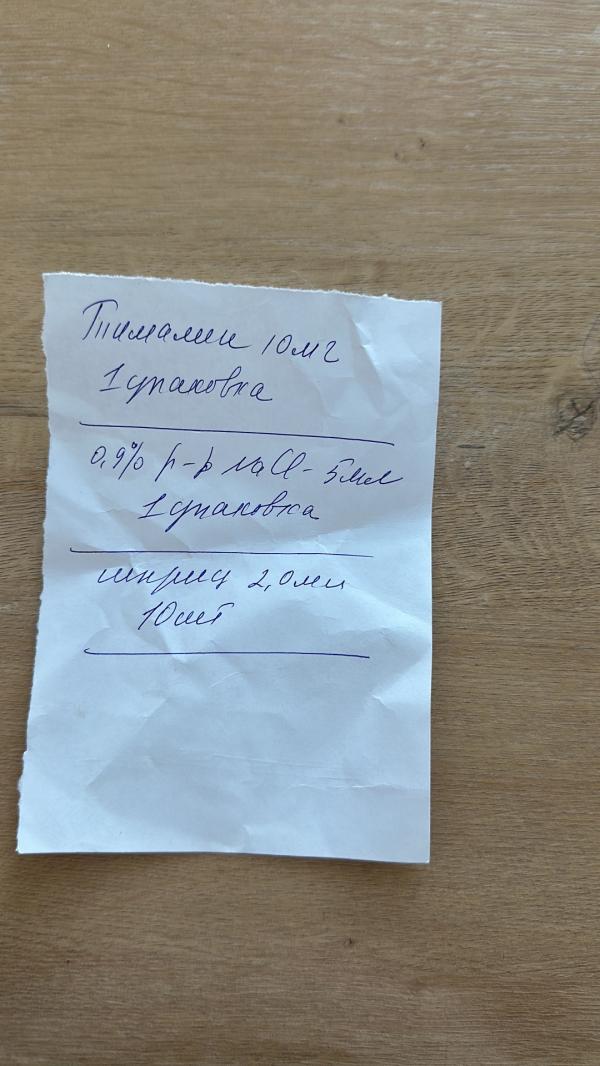 Тималин 10 мг
1 упаковка
0,9% р-р NaCl - 5мл
1 упаковка
шприц 2,0 мл
10 шт